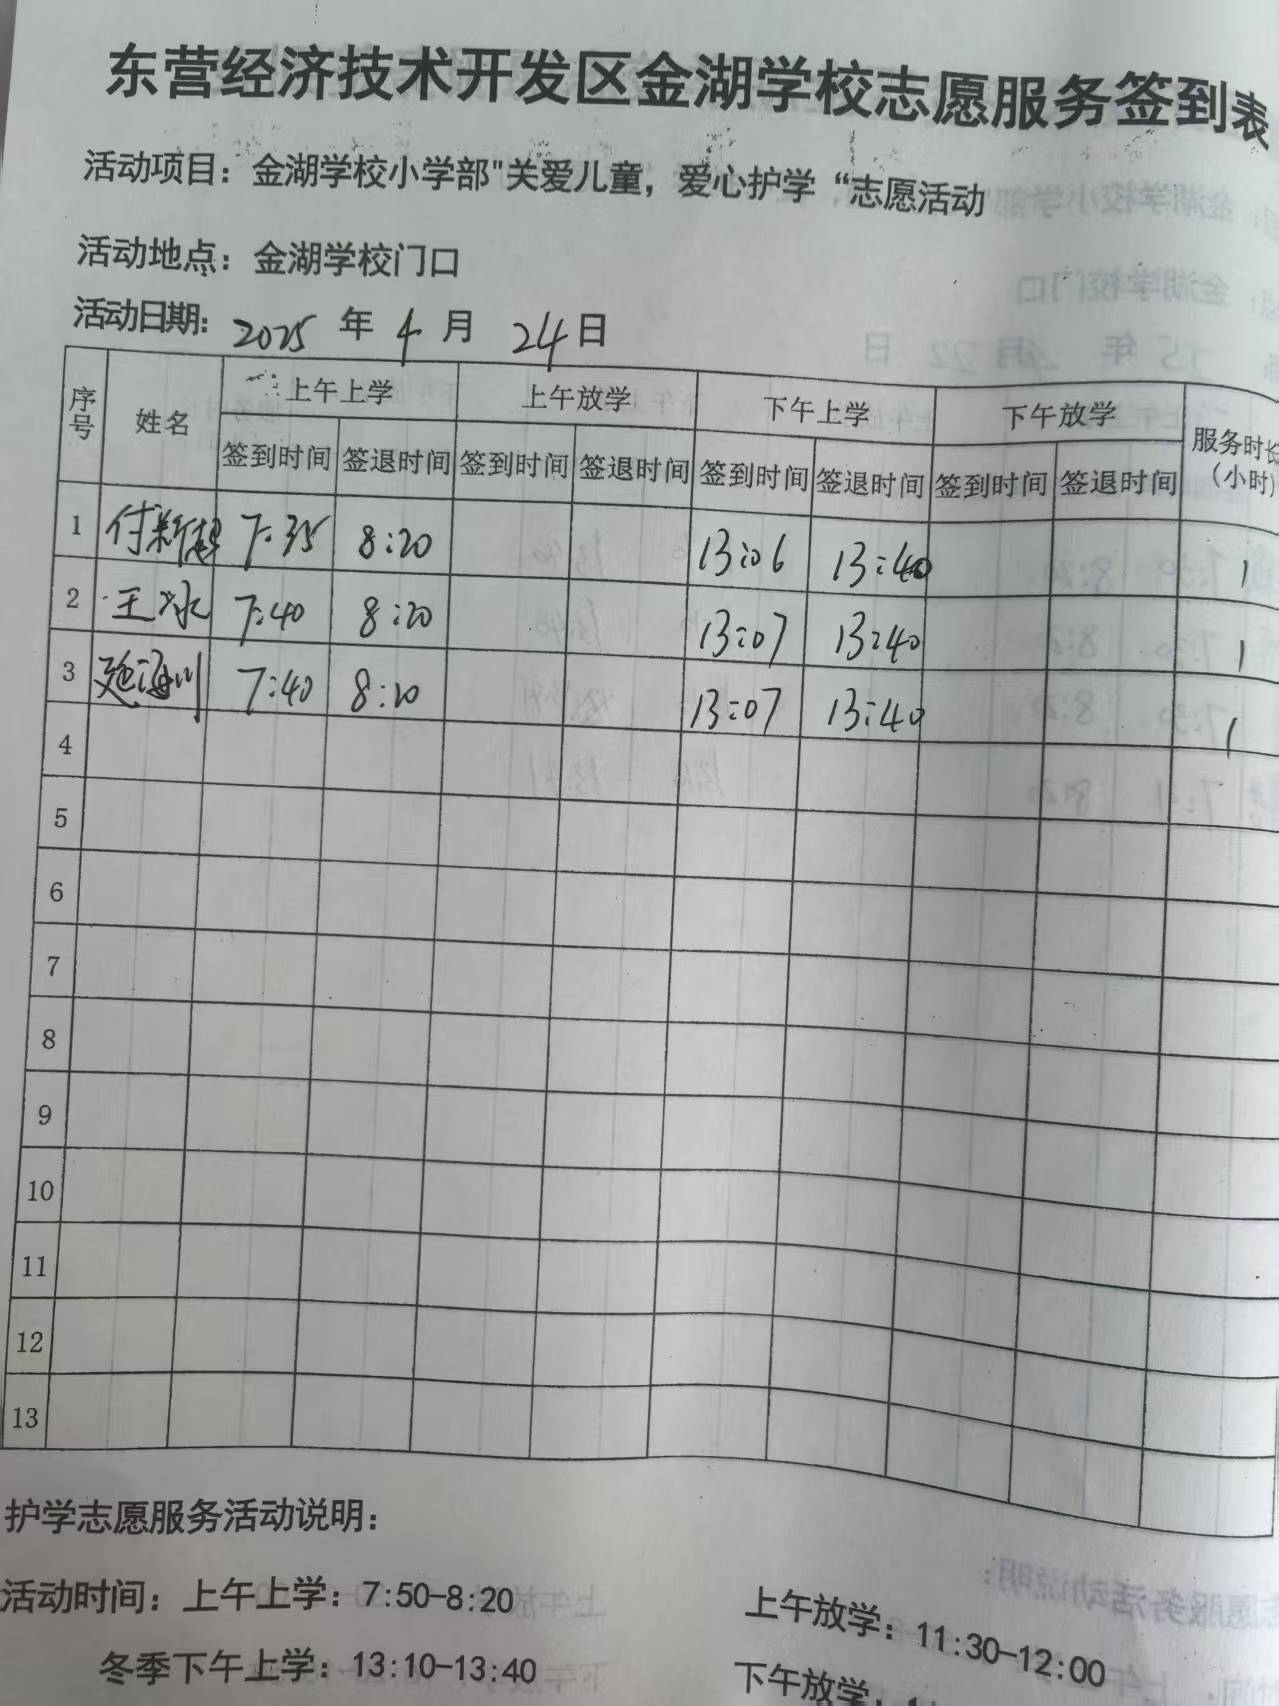 东营经济技术开发区金湖学校志愿服务签到表
活动项目：金湖学校小学部"关爱儿童，爱心护学“志愿活动
活动地点：金湖学校门口
活动日期：2025 年 4 月 24 日
序号 姓名 上午上学 上午放学 下午上学 下午放学 服务时长（小时）
签到时间 签退时间 签到时间 签退时间 签到时间 签退时间 签到时间 签退时间
1 付新 7:35 8:20 13:06 13:40 1
2 王冰 7:40 8:20 13:07 13:40 1
3 海川 7:40 8:20 13:07 13:40 1
4
5
6
7
8
9
10
11
12
13
护学志愿服务活动说明：
活动时间：上午上学：7:50-8:20 上午放学：11:30-12:00
冬季下午上学：13:10-13:40 下午放学：